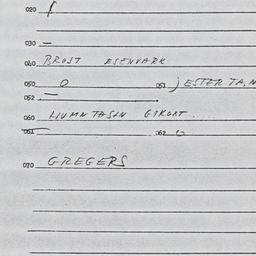 020
030
040 BROST ESENVARK
050 O 051 ) ESTER TA, N
052
060 LIUMNTASIN GSKORT.
061 062
070 GREGERS